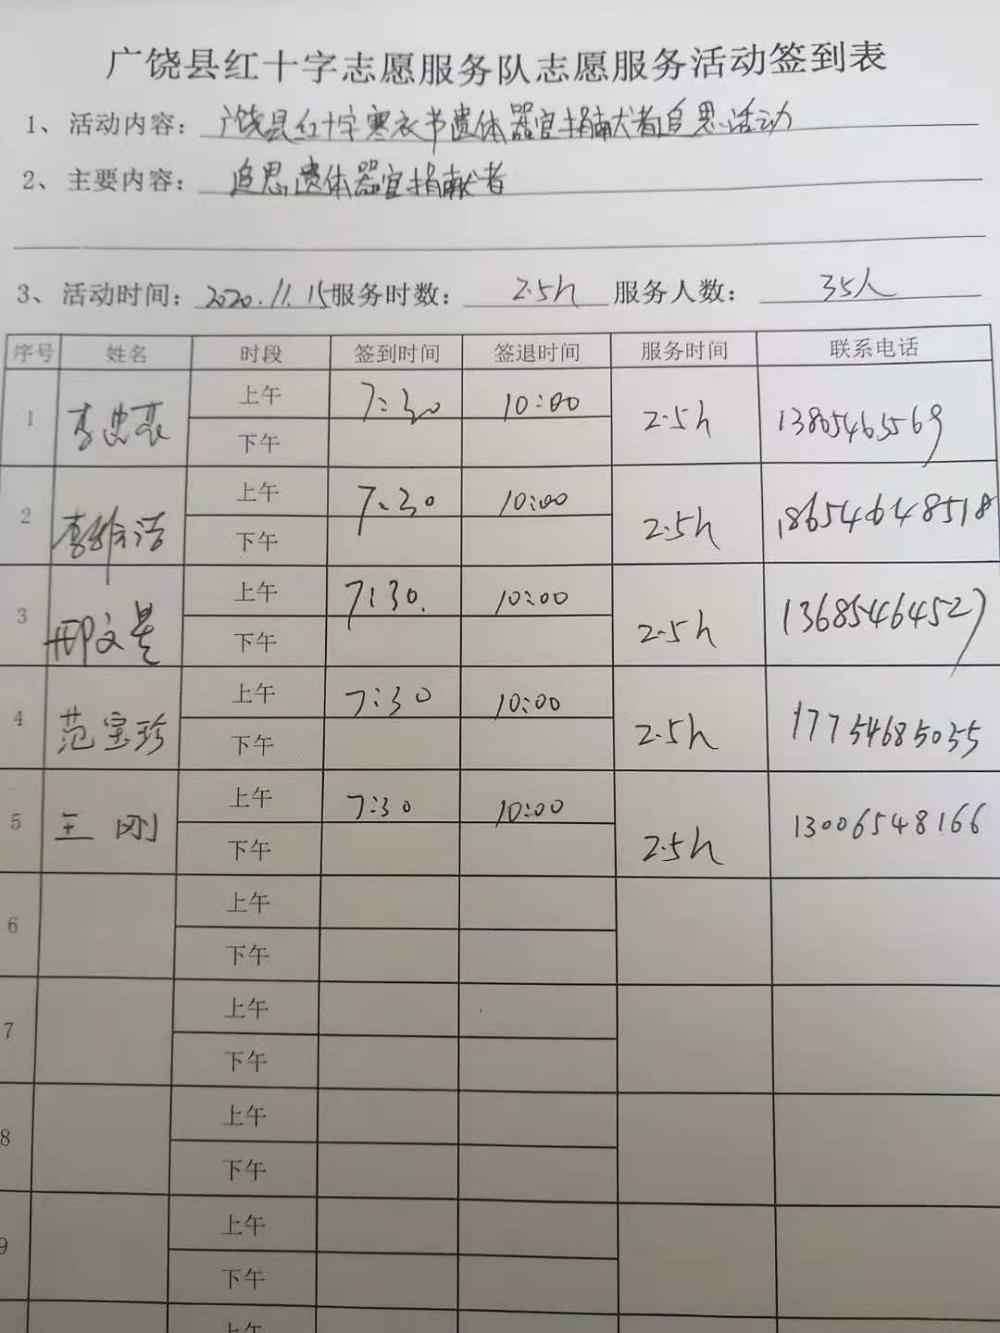 广饶县红十字志愿服务队志愿服务活动签到表
1、活动内容：广饶县红十字寒衣节遗体器官捐献者追思活动
2、主要内容：追思遗体器官捐献者
3、活动时间：2020.11.15服务时数：2.5h 服务人数：35人
序号 姓名 时段 签到时间 签退时间 服务时间 联系电话
1 李忠 上午 7:30 10:00 2.5h 13805465569
下午
2 李 上午 7:30 10:00 2.5h 18654648518
下午
3 邢文 上午 7:30 10:00 2.5h 13685464527
下午
4 范宝珍 上午 7:30 10:00 2.5h 17754685035
下午
5 王刚 上午 7:30 10:00 2.5h 13006548166
下午
6 上午
下午
7 上午
下午
8 上午
下午
9 上午
下午
上午